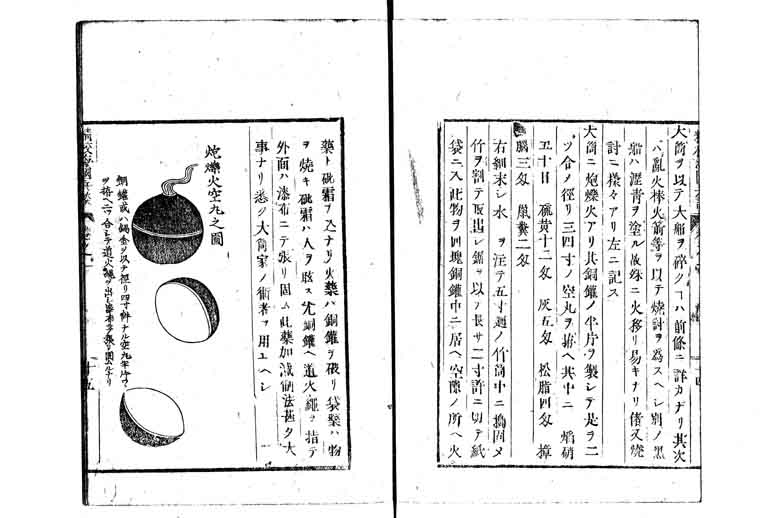 大筒ヲ以テ大船ヲ碎クヿハ前條ニ詳カナリ其次
ハ亂火棒火箭等ヲ以テ燒討ヲ爲スヘシ別ノ黑
船ハ瀝青ヲ塗ル故殊ニ火移リ易キナリ偖又燒
討ニ樣々アリ左ニ記ス
大筒ニ炮爍火アリ其銅鑵ノ半片ヲ製シテ是ヲ二
ツ合メ徑リ三四寸ノ空丸ヲ拵ヘ其中ニ 焔硝
五十目 硫黄十二匁 灰五匁 松脂四匁 樟
腦三匁 鼠糞二匁
右細末シ水ヲ注テ五寸廻ノ竹筒中ニ搗固メ
竹ヲ割テ取出シ鋸ヲ以テ長サ二寸許ニ切テ紙
袋ニ入此物ヲ四塊銅鑵中ニ居ヘ空隙ノ所ヘ火
藥ト砒霜ヲ込ナリ火藥ハ銅鑵ヲ破リ袋藥ハ物
ヲ燒キ砒霜ハ人ヲ眩ス尤銅鑵ヘ道火繩ヲ指テ
外面ハ漆布ニテ張リ固ム此藥加減製法甚タ大
事ナリ悉ク大筒家ノ術者ヲ用ユヘシ
炮爍火空丸之圖
銅鑵或ハ錫金ヲ以テ徑リ四寸許ナル空丸半片ツ
ヲ拵ヘ二ツ合シテ道火繩ヲ出シ漆布ヲ張リ固ルナリ
十五